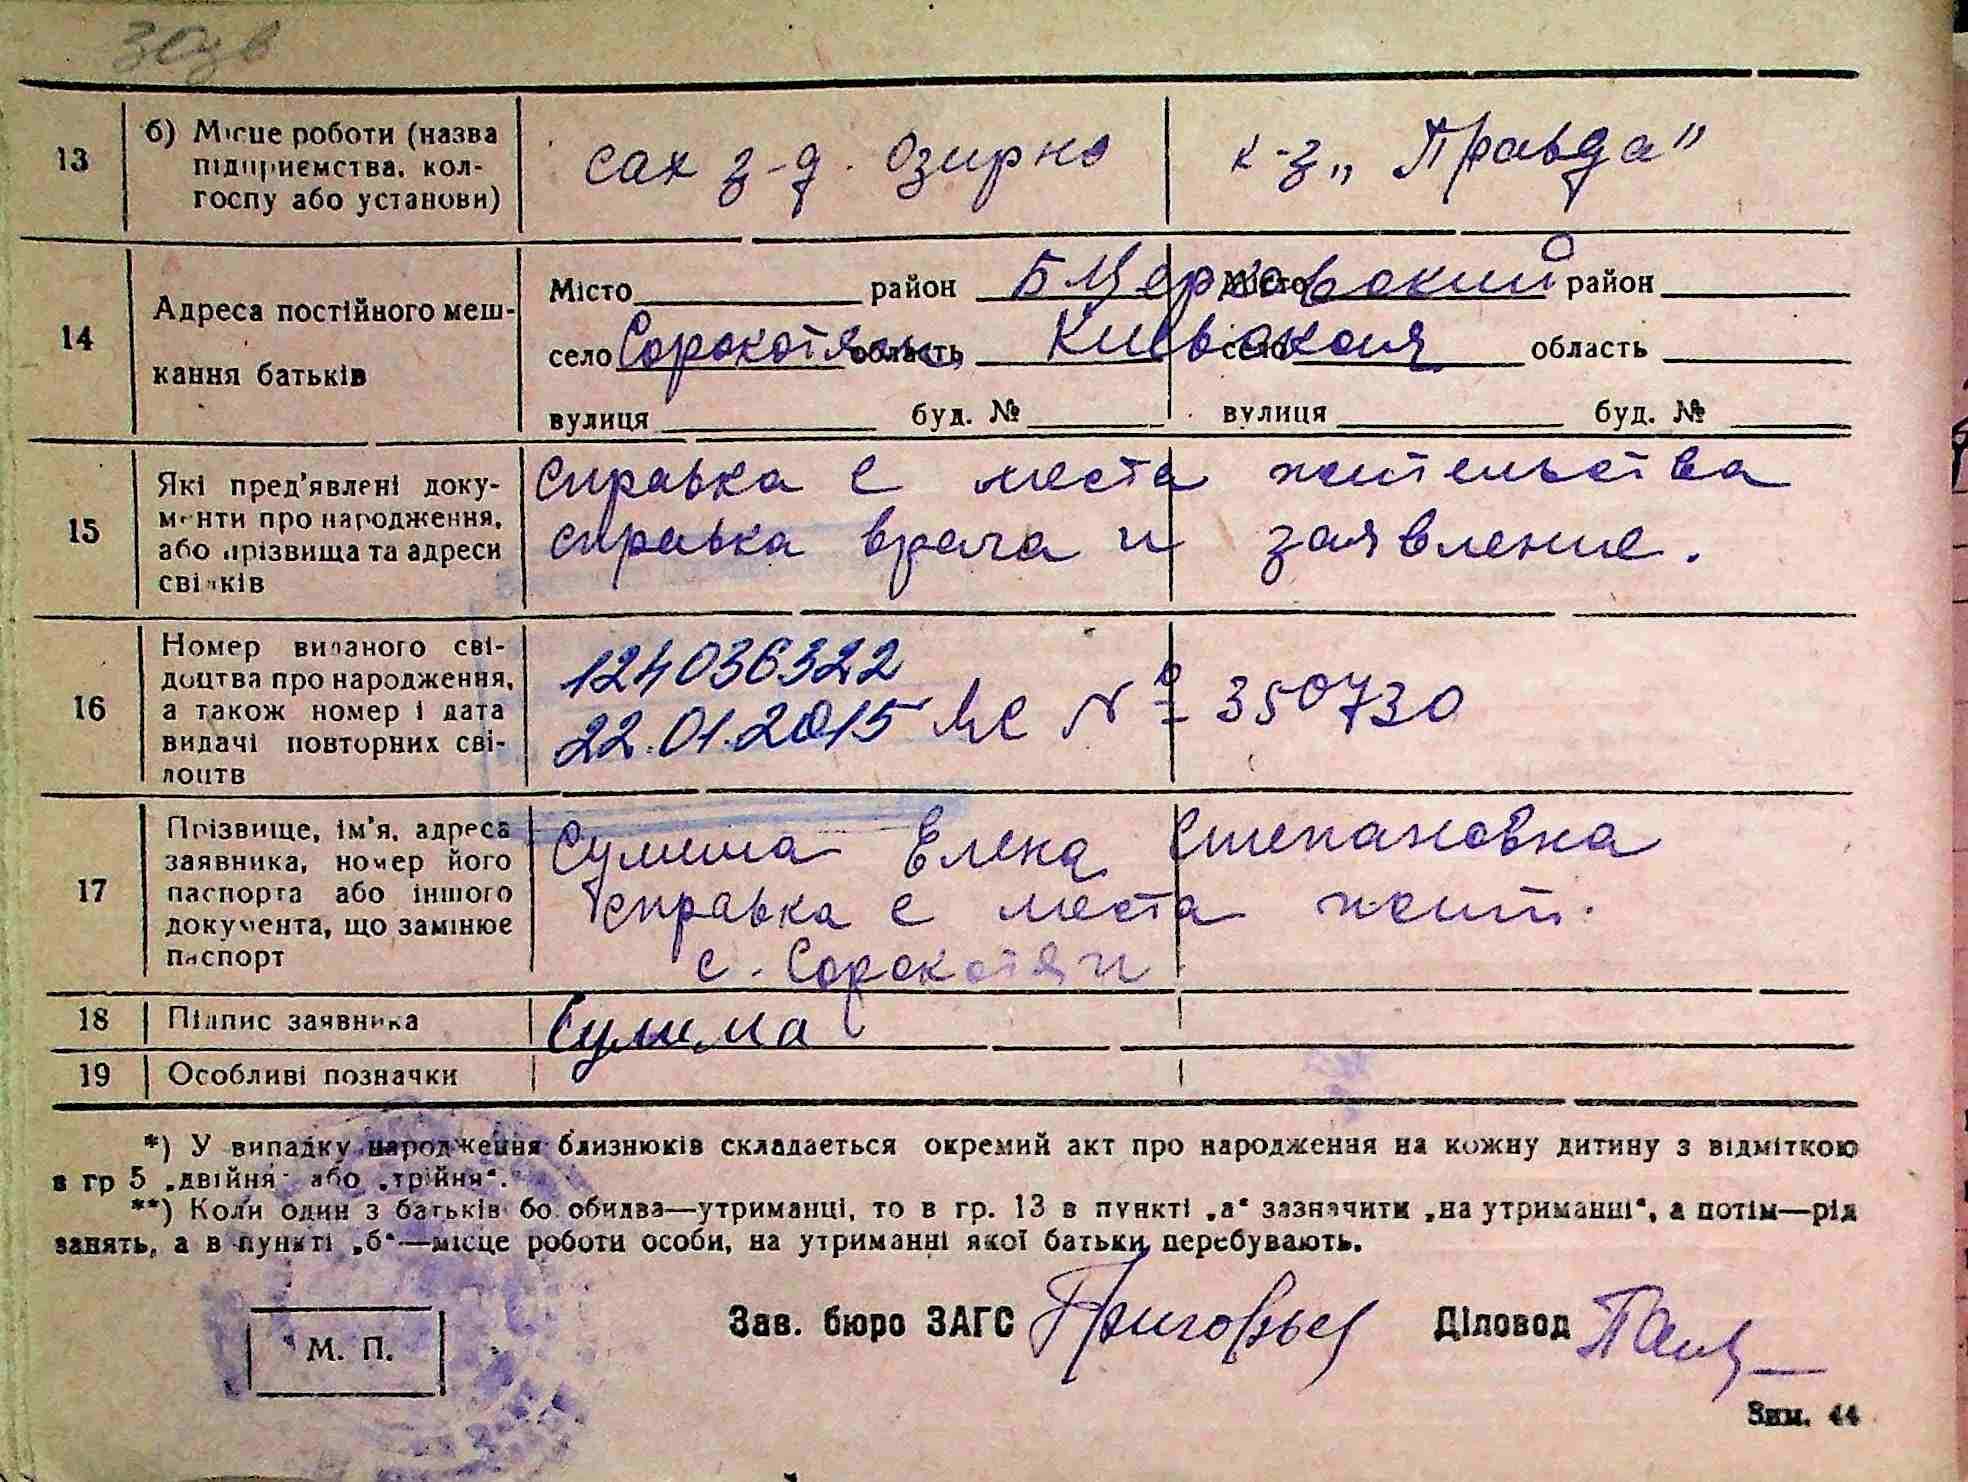 13
б) Місце роботи (назва
підприємства, кол-
госпу або установи)
сах з-д. Озирно
к-з „Правда"
14
Адреса постійного меш-
кання батьків
Місто район Б Церковский Місто район
село Сорокотяги область Киевская село область
вулиця буд. № вулиця буд. №
15
Які пред'явлені доку-
менти про народження,
або прізвища та адреси
свідків
Справка с места жительства
справка врача и заявление.
16
Номер виданого сві-
доцтва про народження,
а також номер і дата
видачі повторних сві-
доцтв
124036322
22.01.2015 № 350730
17
Прізвище, ім'я, адреса
заявника, номер його
паспорта або іншого
документа, що замінює
паспорт
Сулима Елена Степановка
справка с места жит.
с. Сорокотяги
18
Підпис заявника
Сулима
19
Особливі позначки
*) У випадку народження близнюків складається окремий акт про народження на кожну дитину з відміткою
в гр 5 „двійня" або „трійня".
**) Коли один з батьків бо обидва—утриманці, то в гр. 13 в пункті „а" зазначити „на утриманні", а потім—рід
занять, а в пункті „б"—місце роботи особи, на утриманні якої батьки перебувають.
М. П.
Зав. бюро ЗАГС Григорьев Діловод
Зам. 44